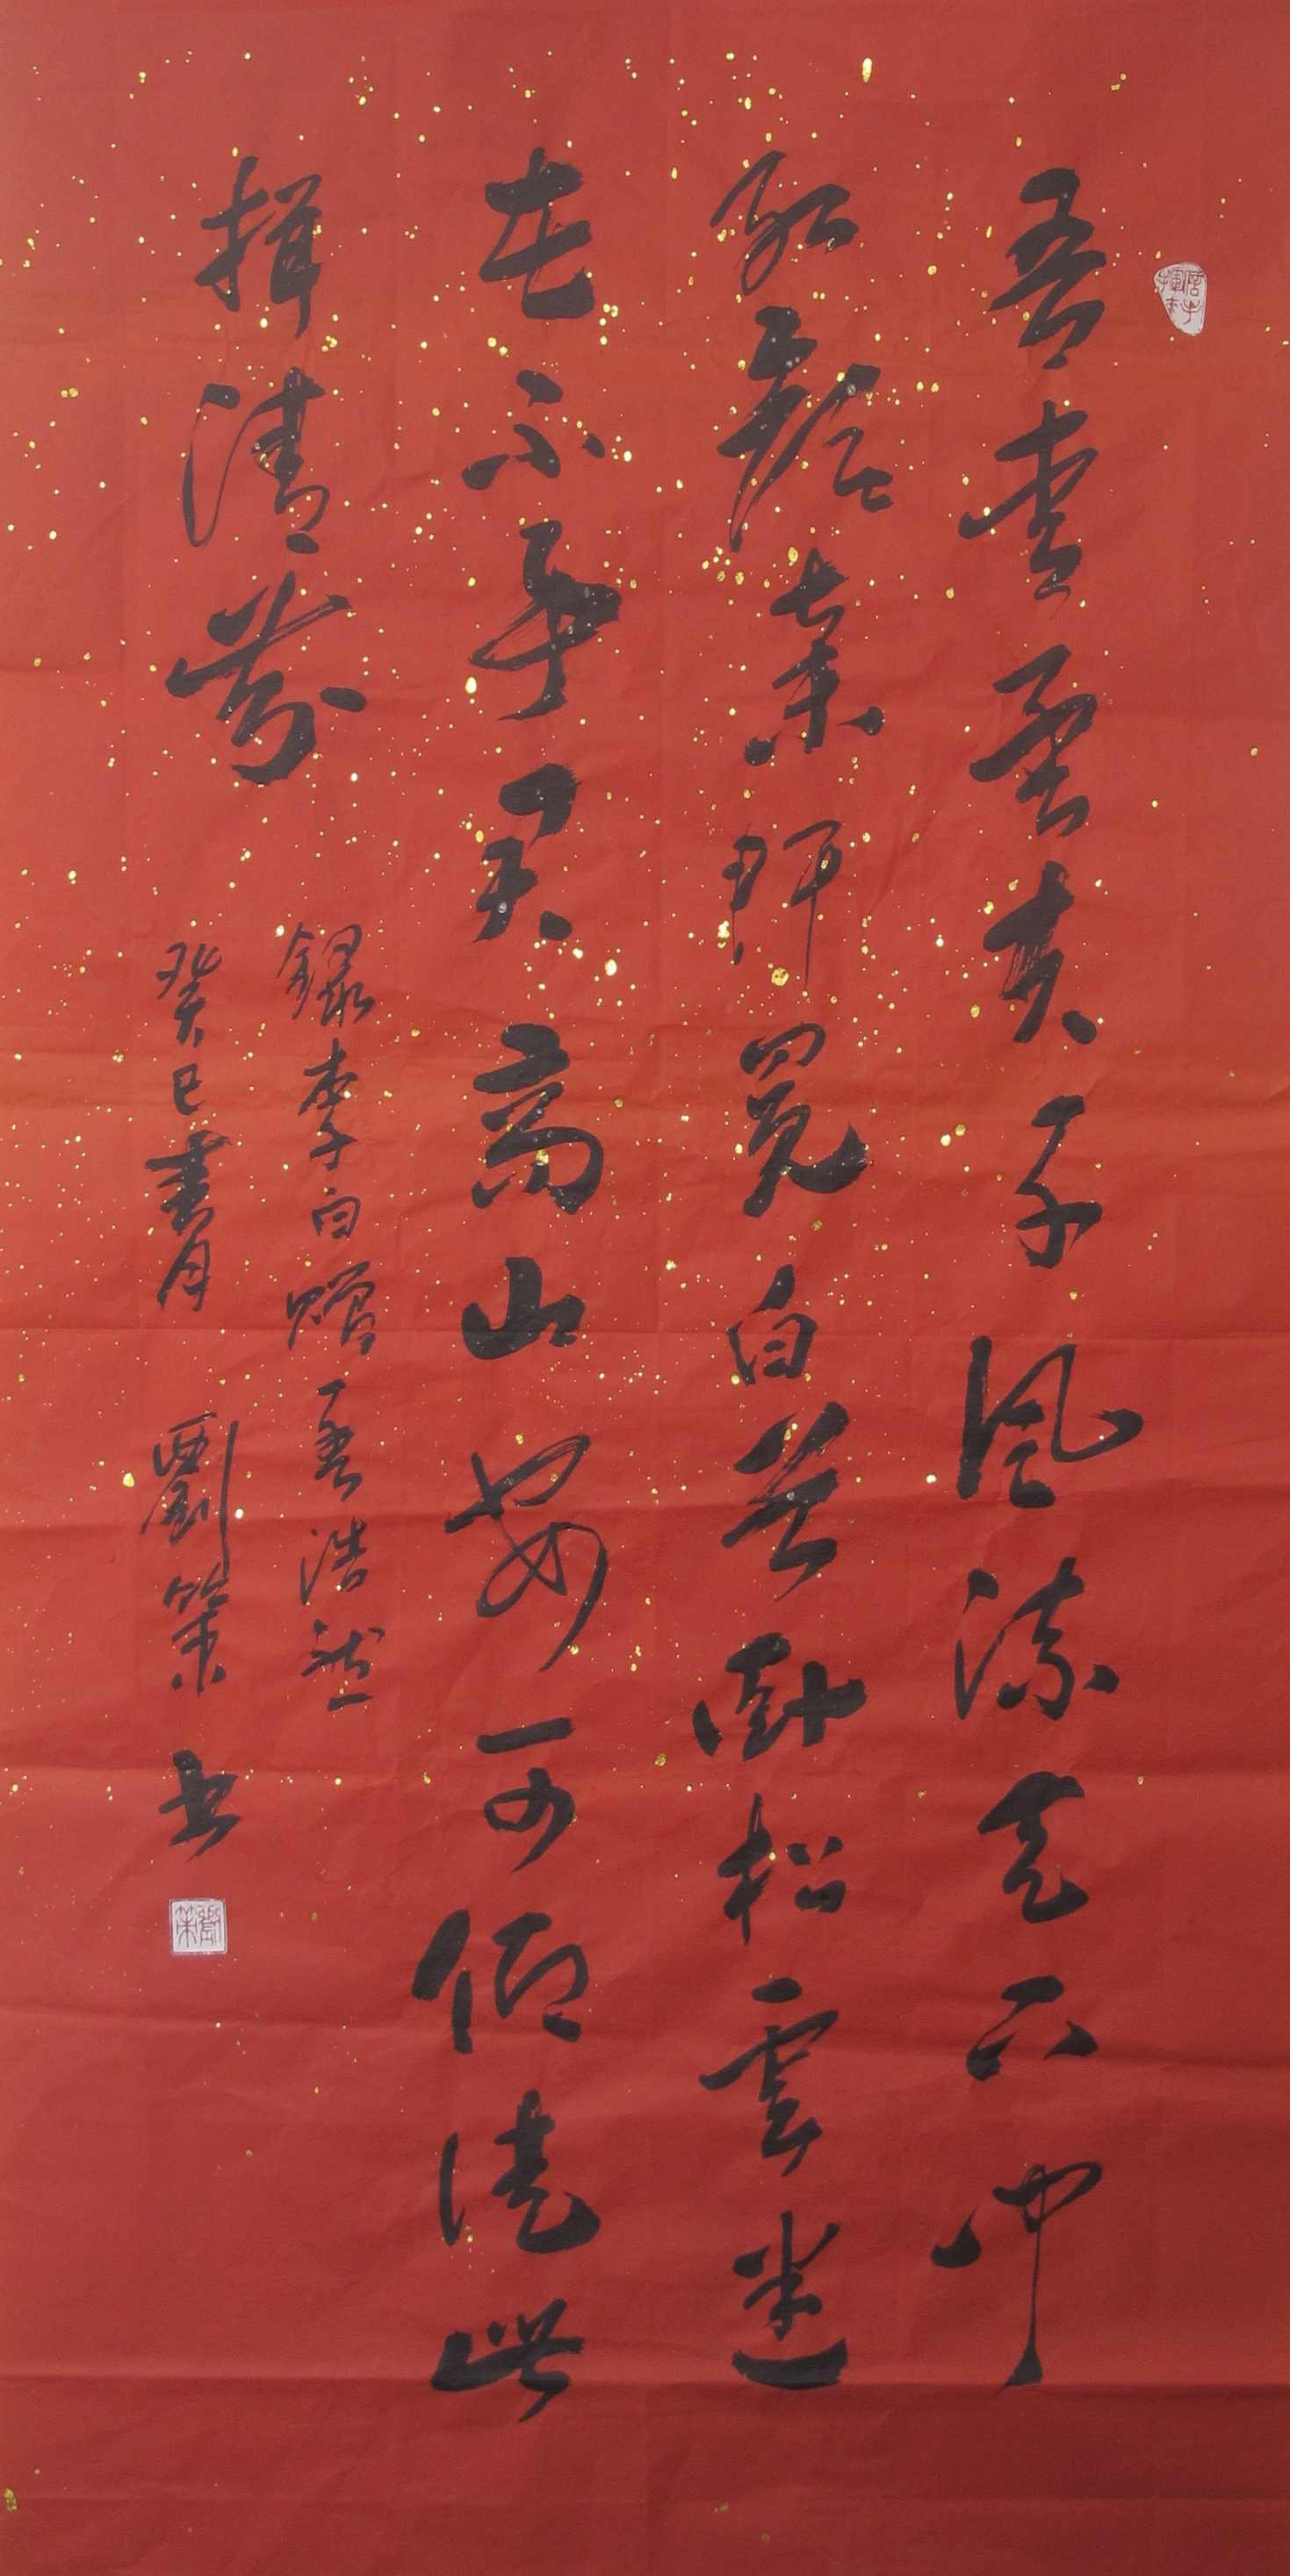 信手揮來
吾愛孟夫子風流天下聞
紅顏棄軒冕白首臥松雲迷
花不事君高山安可仰徒此
揖清芬
錄李白贈孟浩然
癸巳月 劉策書
劉策